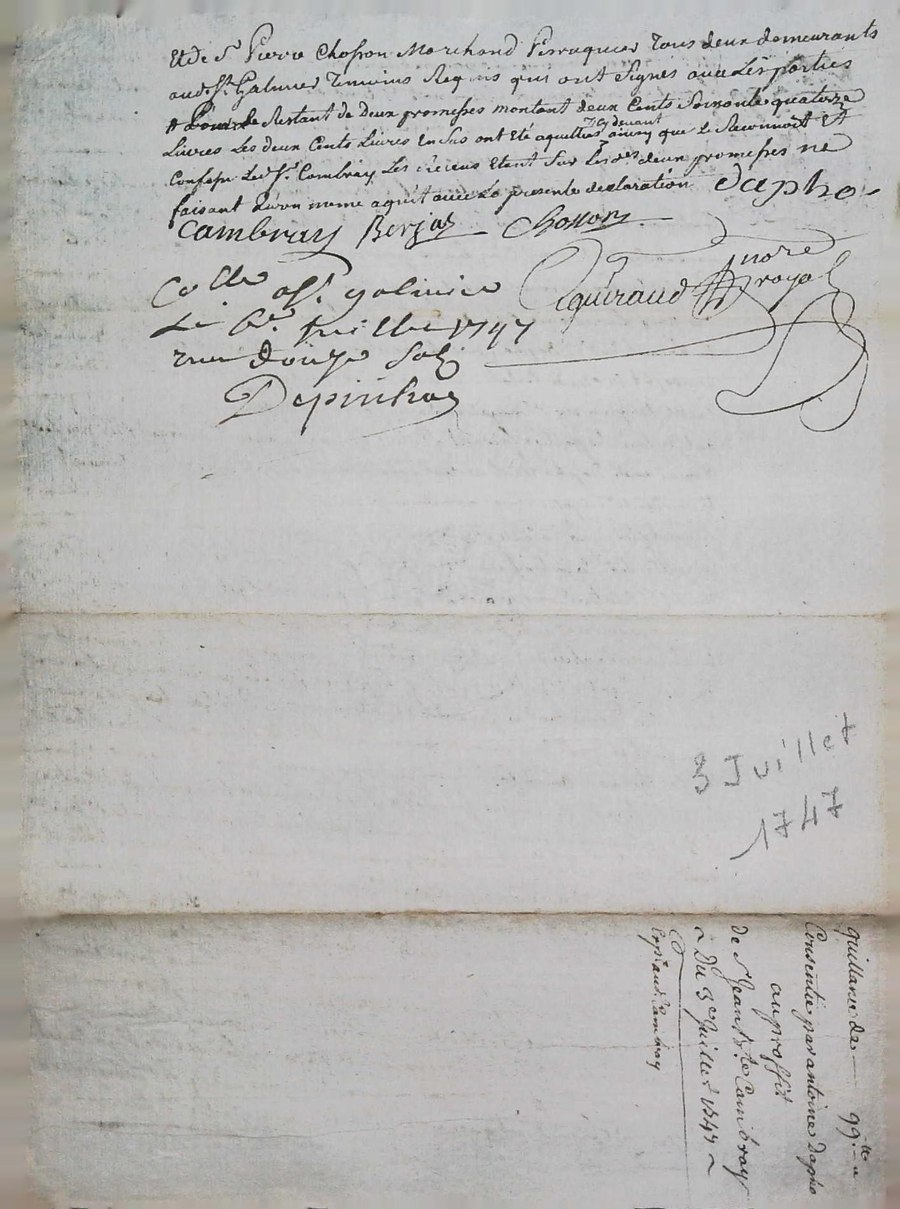 Et de Sr. Pierre Chosson Marchand Perruquier tous deux demeurants
aud. St. Galmier temoins Requis qui ont signés avec Les parties
Pour Le Restant de deux promesses montant deux Cents Soixante quatorze
cy devant
Livres Les deux Cents Livres En Sus ont été aquittés ainsy que le Reconnoit Et
Confesse Led. Sr. Cambray Les écrits Etant Sur Les. deux promesses ne
faisant qu'un meme aquit avec La presente declaration Dapho
Cambray Berjat Chosson
nore
Eguiraud royal
Colle a St. galmier
Le 6e. Juillet 1747
reçu douze Sols
Depinhac
3 Juillet
1747
quittance de 99tt
Consentie par antoine Dapho
au proffit
de Sr. Jean Bte Cambray
Du 3e Juillet 1747
Expt. aud. Cambray